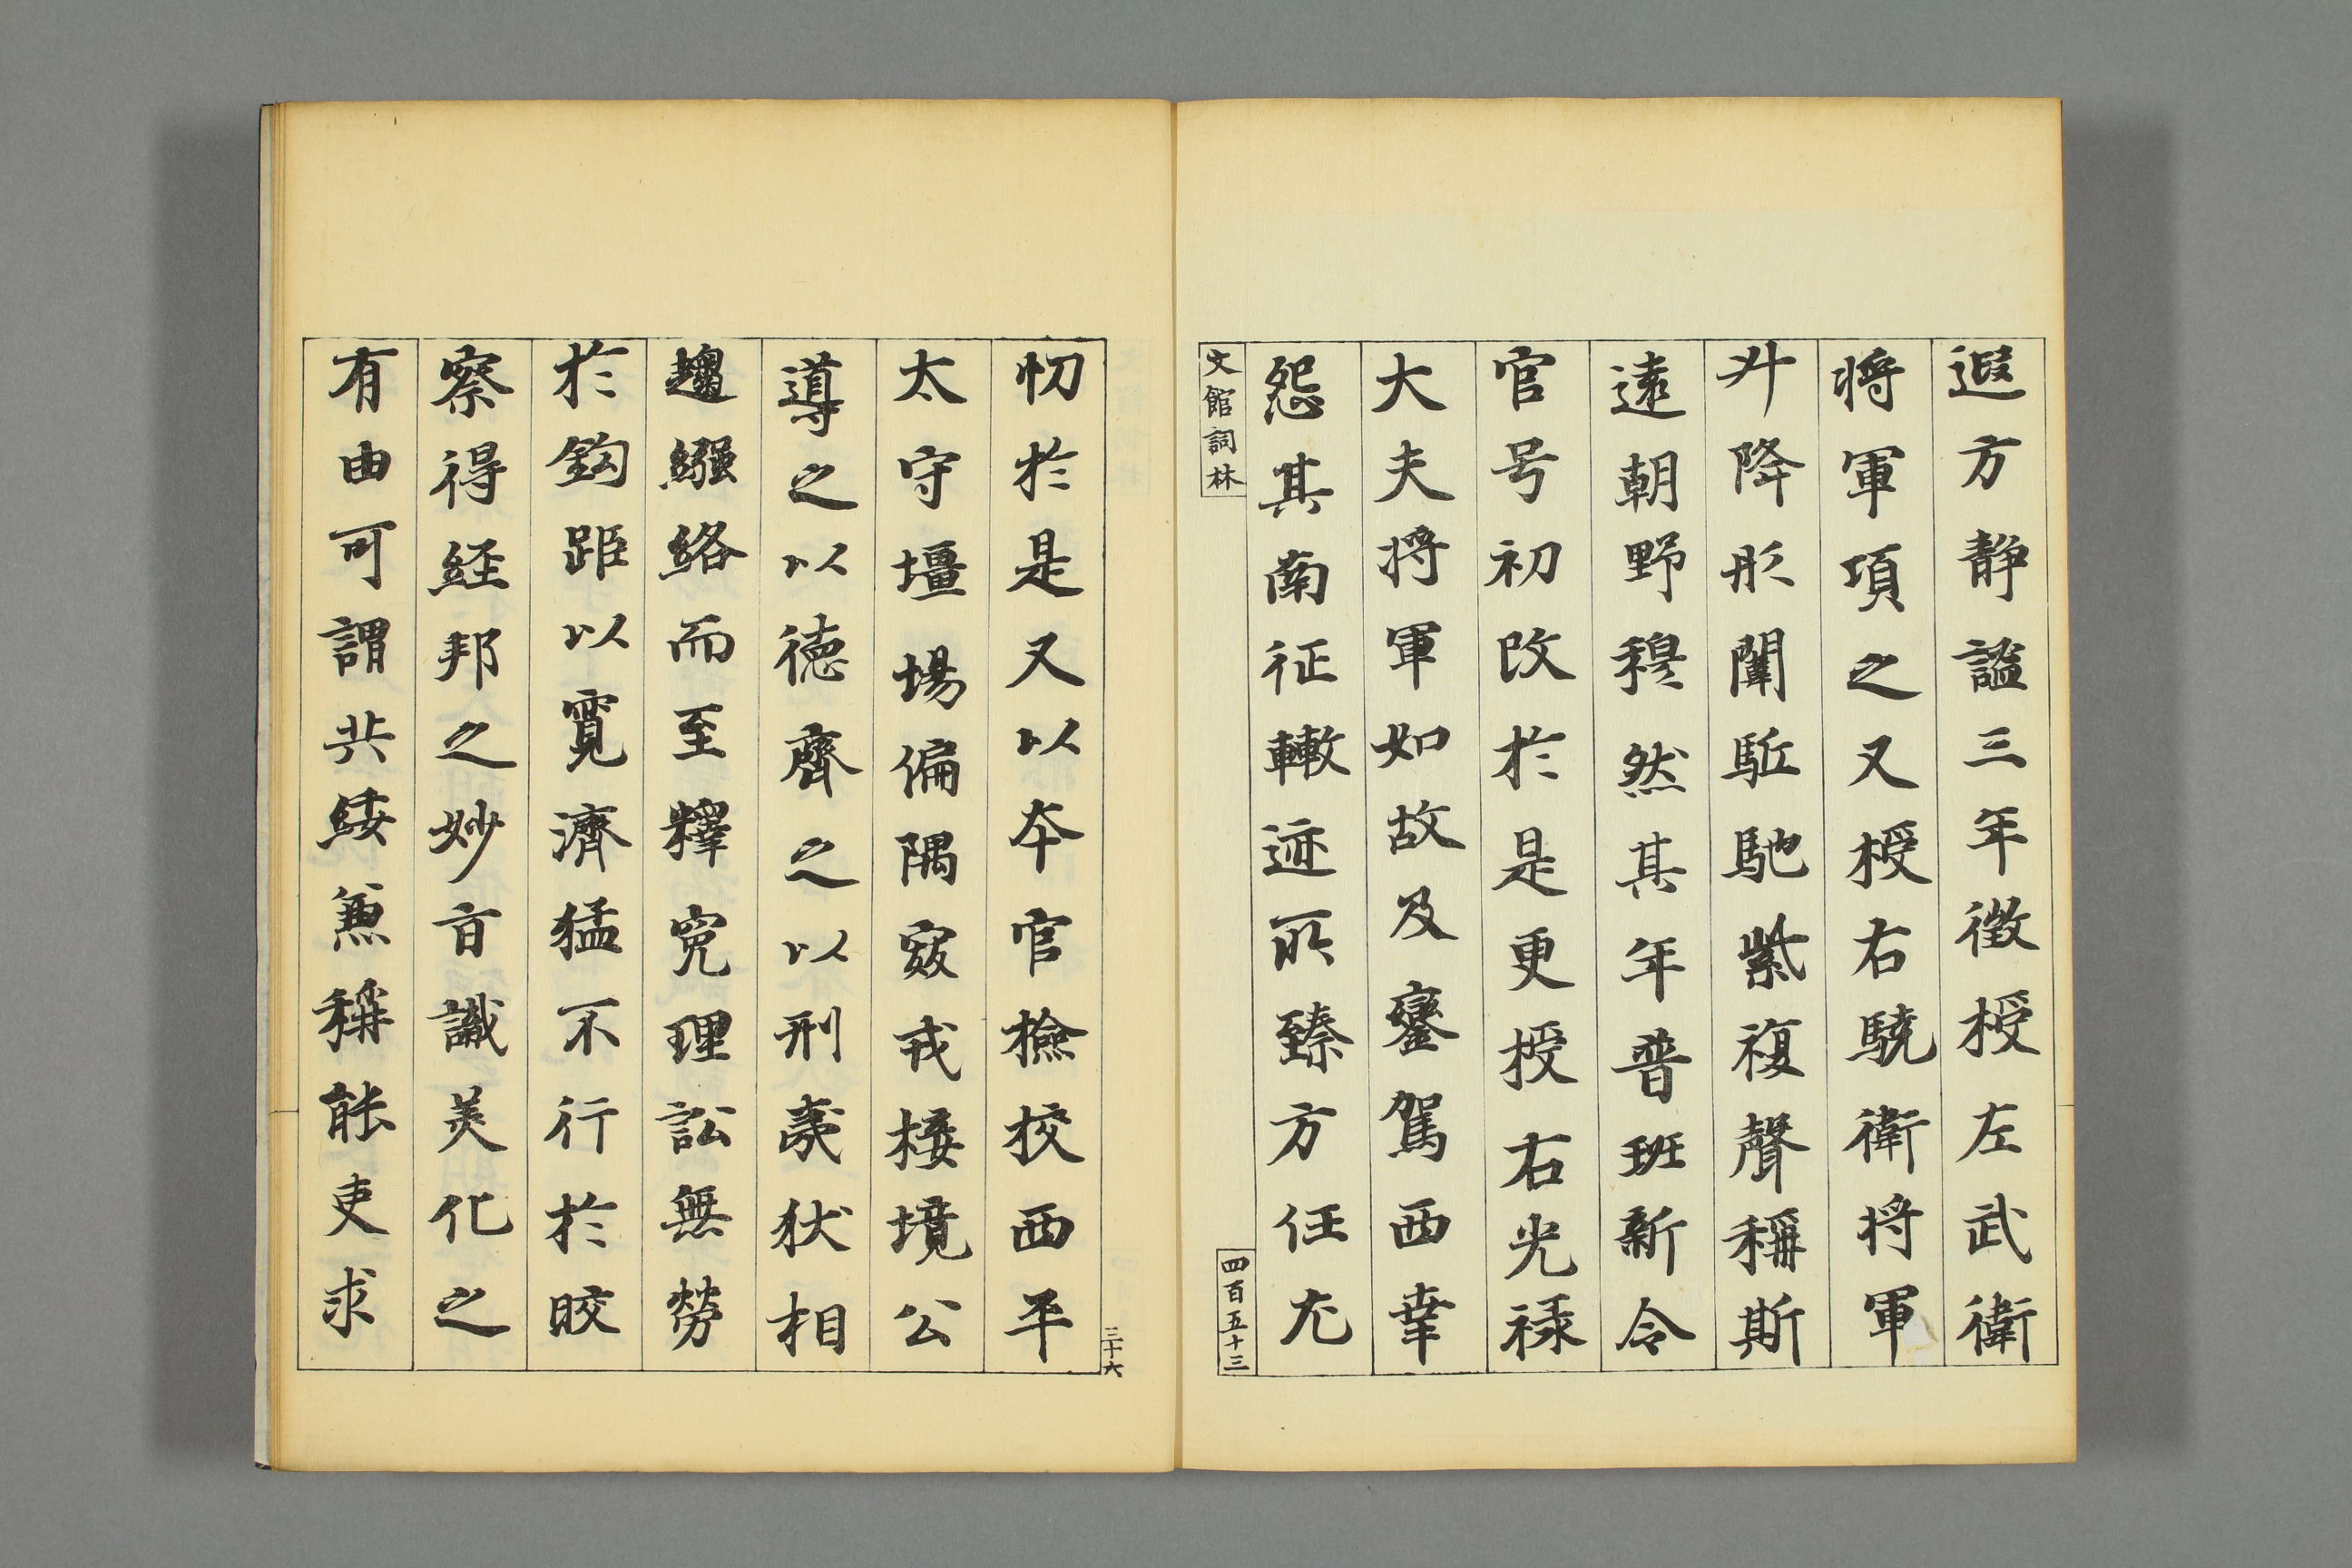 遐方靜謐三年徵授左武衛
將軍項之又授右驍衛將軍
升降彤闈駈馳紫複聲稱斯
遠朝野穆然其年普班新令
官号初改於是更授右光祿
大夫將軍如故及鑾駕西幸
怨其南征轍迹所臻方任尤
文館詞林
四百五十三
三十六
忉於是又以本官撿挍西平
太守壃場偏隅寇戎接境公
導之以德齊之以刑裔狄相
趍繦絡而至釋寃理訟無勞
於鈎距以寬濟猛不行於皎
察得經邦之妙旨識美化之
有由可謂共綏兼稱能吏求